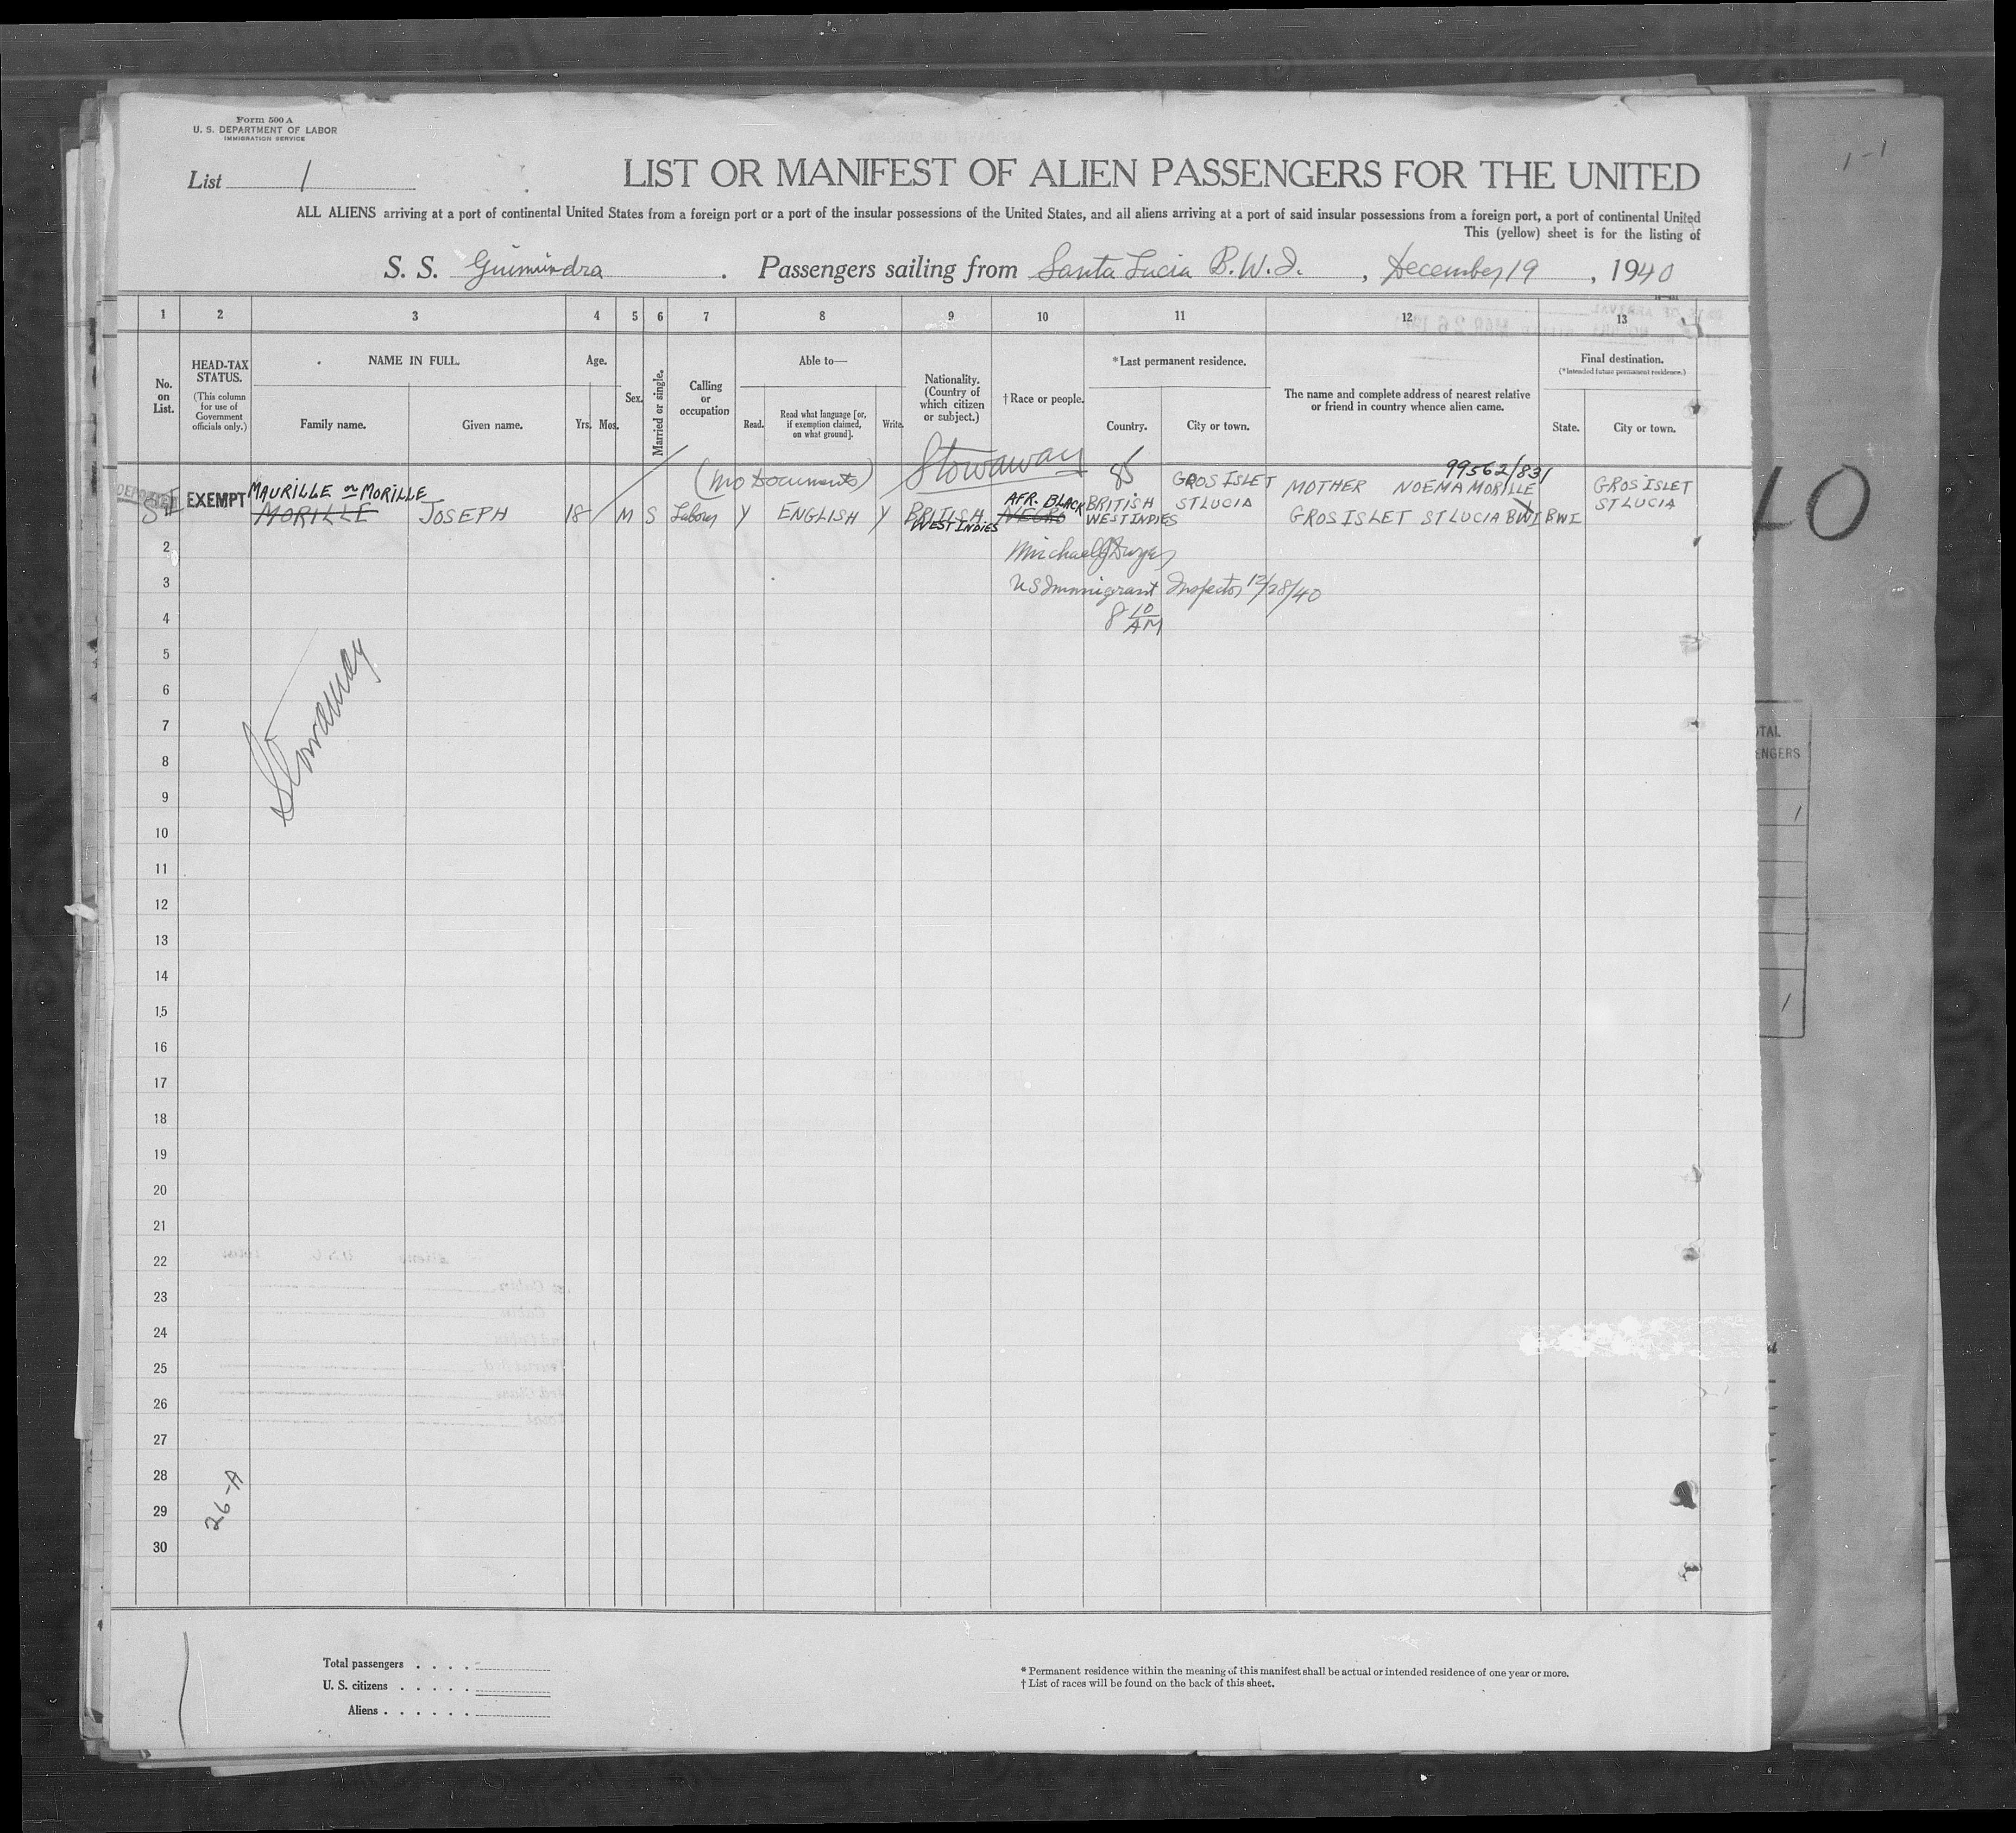 Form 500 A
U. S. DEPARTMENT OF LABOR
IMMIGRATION SERVICE
1-1
List 1
LIST OR MANIFEST OF ALIEN PASSENGERS FOR THE UNITED
ALL ALIENS arriving at a port of continental United States from a foreign port or a port of the insular possessions of the United States, and all aliens arriving at a port of said insular possessions from a foreign port, a port of continental United
This (yellow) sheet is for the listing of
S. S. Guimundra . Passengers sailing from Santa Lucia B.W.I. , December 19 , 1940
1 2 3 4 5 6 7 8 9 10 11 12 13
No. on List.
HEAD-TAX STATUS.
(This column for use of Government officials only.)
NAME IN FULL.
Family name. Given name.
Age.
Yrs. Mos.
Sex.
Married or single.
Calling or occupation
Able to—
Read. Read what language [or, if exemption claimed, on what ground]. Write.
Nationality. (Country of which citizen or subject.)
†Race or people.
*Last permanent residence.
Country. City or town.
The name and complete address of nearest relative or friend in country whence alien came.
Final destination.
(*Intended future permanent residence.)
State. City or town.
(No Documents) Stowaway 85 99562/831
DEPORTED EXEMPT MAURILLE or MORILLE
MORILLE JOSEPH 18 M S Labour Y ENGLISH Y BRITISH WEST INDIES AFR. BLACK NEGRO BRITISH WEST INDIES GROS ISLET ST LUCIA MOTHER NOEMA MORILLE GROS ISLET ST LUCIA BWI BWI GROS ISLET ST LUCIA
2 Michael J Dwyer
3 US Immigrant Inspector 12/28/40
4 8 10 AM
5
6
7
8
9
10
11
12
13
14
15
16
17
18
19
20
21
22
23
24
25
26
27
28
29
30
Stowaway
26-A
40
TOTAL
PASSENGERS
1
1
Total passengers . . . .
U. S. citizens . . . . .
Aliens . . . . . .
* Permanent residence within the meaning of this manifest shall be actual or intended residence of one year or more.
† List of races will be found on the back of this sheet.